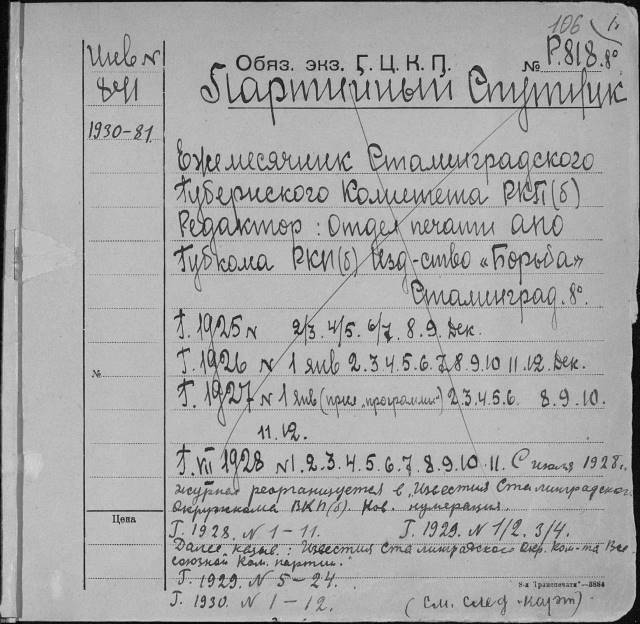 106
Инв N
841
1930-81.
Обяз. экз. Г. Ц. К. П.
№ Р.818.8°
Партийный Спутник
Ежемесячник Сталинградского
Губернского Комитета РКП(б)
Редактор: Отдел печати АПО
Губкома РКП(б) Изд-ство «Борьба»
Сталинград. 8°.
Г. 1925 N 2/3. 4/5. 6/7. 8. 9. Дек.
Г. 1926 N 1 янв 2. 3. 4. 5. 6. 7. 8. 9. 10 11. 12. Дек.
№
Г. 1927 N 1 янв (прил „программы“) 2. 3. 4. 5. 6. 8. 9. 10.
11. 12.
Г. VII 1928 N 1. 2. 3. 4. 5. 6. 7. 8. 9. 10. 11. С июля 1928 г.
журнал реорганизуется в „Известия Сталинградского
Окружкома ВКП(б). Нов. нумерация.
Цена
Г. 1928. N 1 – 11. Г. 1929. N 1/2. 3/4.
Далее назыв.: Известия Сталинградского Окр. Ком-та Все
союзной Ком. партии."
Г. 1929. N 5 – 24.
8-я „Транспечати“—3884
Г. 1930. N 1 – 12. (см. след карт)